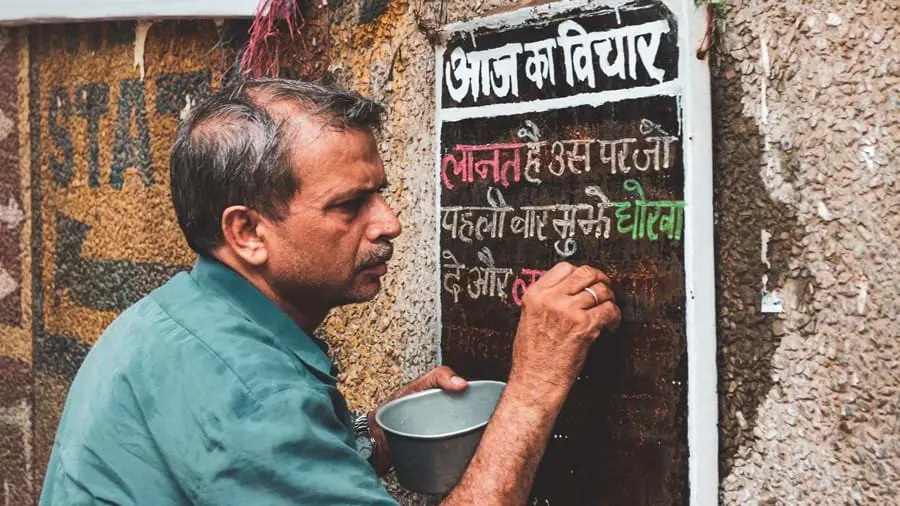 STAT
आज का विचार
लानत है उस पर जो
पहली बार मुझे धोखा
दे और ल